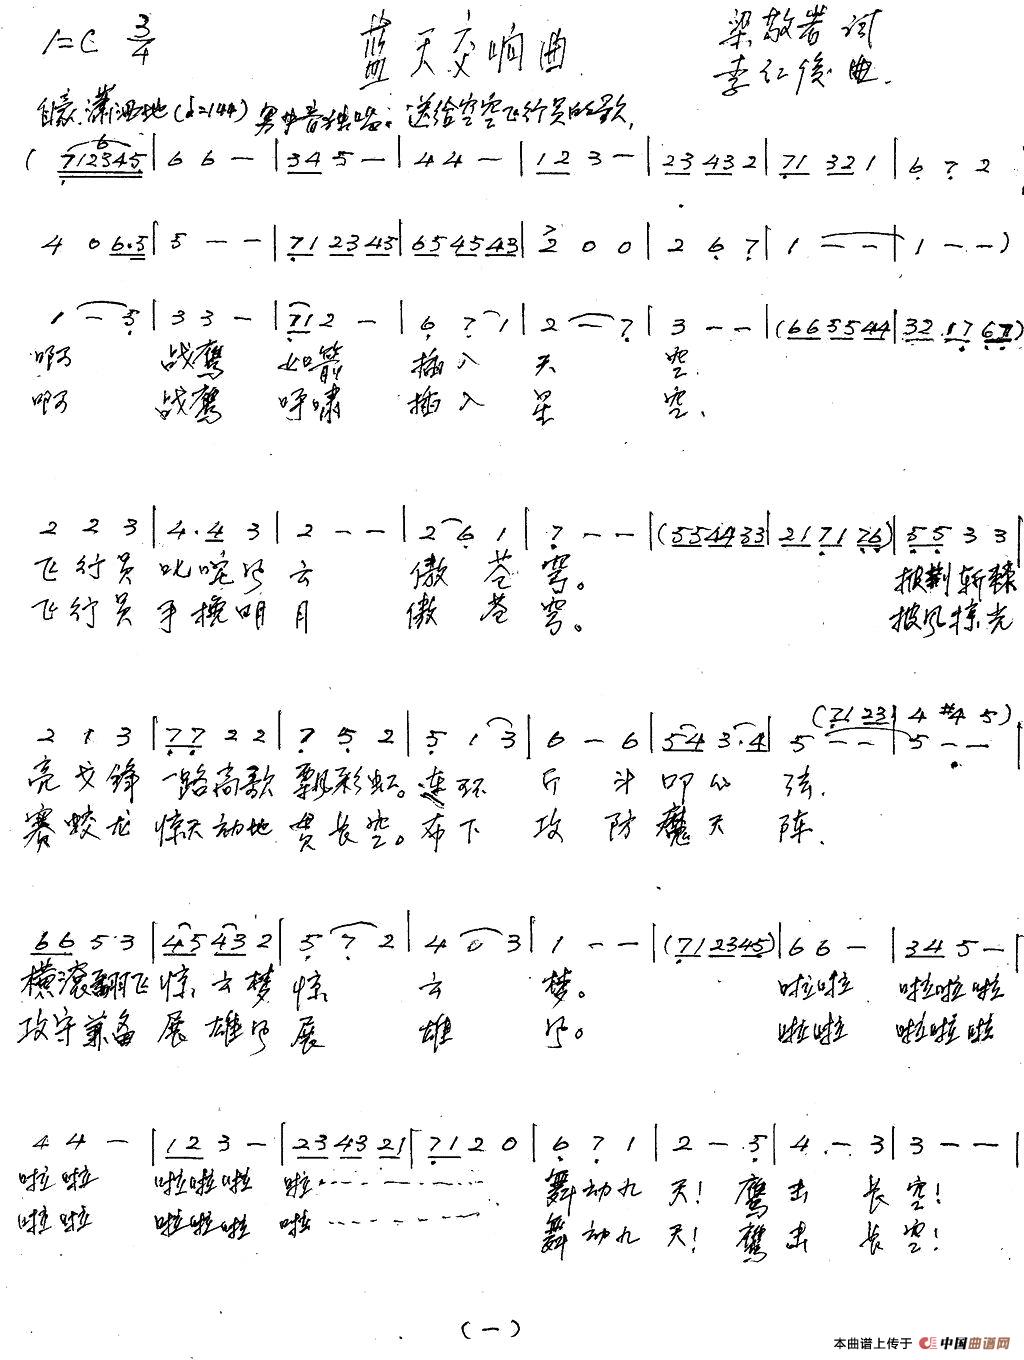 1=C 3/4 蓝天交响曲 梁敬岩 词
李红俊 曲.
自豪.潇洒地(♩=144) 男中音独唱: 送给空空飞行员的歌,
( 712345 | 6 6 - | 34 5 - | 4 4 - | 12 3 - | 23 43 2 | 71 32 1 | 6 7 2
4 0 6.5 | 5 - - | 71 23 45 | 65 45 43 | 2 0 0 | 2 6 7 | 1 - - | 1 - - )
1 - 5 | 3 3 - | 71 2 - | 6 7 1 | 2 - 7 | 3 - - | (66 55 44 | 32 17 67)
啊 战鹰 如箭 插入 天 空.
啊 战鹰 呼啸 插入 星 空、
2 2 3 | 4. 4 3 | 2 - - | 2 6 1 | 7 - - | (55 44 33 | 21 71 76) | 55 3 3 |
飞行员 叱咤风云 傲苍穹。 披荆斩棘
飞行员 手挽明月 傲苍穹。 披风惊光
(71 23 | 4 #4 5)
2 1 3 | 77 2 2 | 7 5 2 | 5 1 3 | 6 - 6 | 54 3.4 | 5 - - | 5 - - |
亮戈锋 一路高歌 飘彩虹。连环 斤 斗 叩心 弦.
赛蛟龙 惊天动地 贯长空。布下 攻 防 魔天 阵.
66 5 3 | 45 43 2 | 5 7 2 | 4 0 3 | 1 - - | (71 23 45) | 6 6 - | 34 5 - |
横滚翻飞 惊云梦 惊 云 梦。 啦啦 啦啦啦
攻守兼备 展雄风 展 雄 风。 啦啦 啦啦啦
4 4 - | 12 3 - | 23 43 21 | 71 2 0 | 6 7 1 | 2 - 5 | 4 - 3 | 3 - - |
啦啦 啦啦啦 啦…… 舞动九 天! 鹰击 长空!
啦啦 啦啦啦 啦…… 舞动九 天! 鹰击 长空!
(一)
本曲谱上传于 中国曲谱网